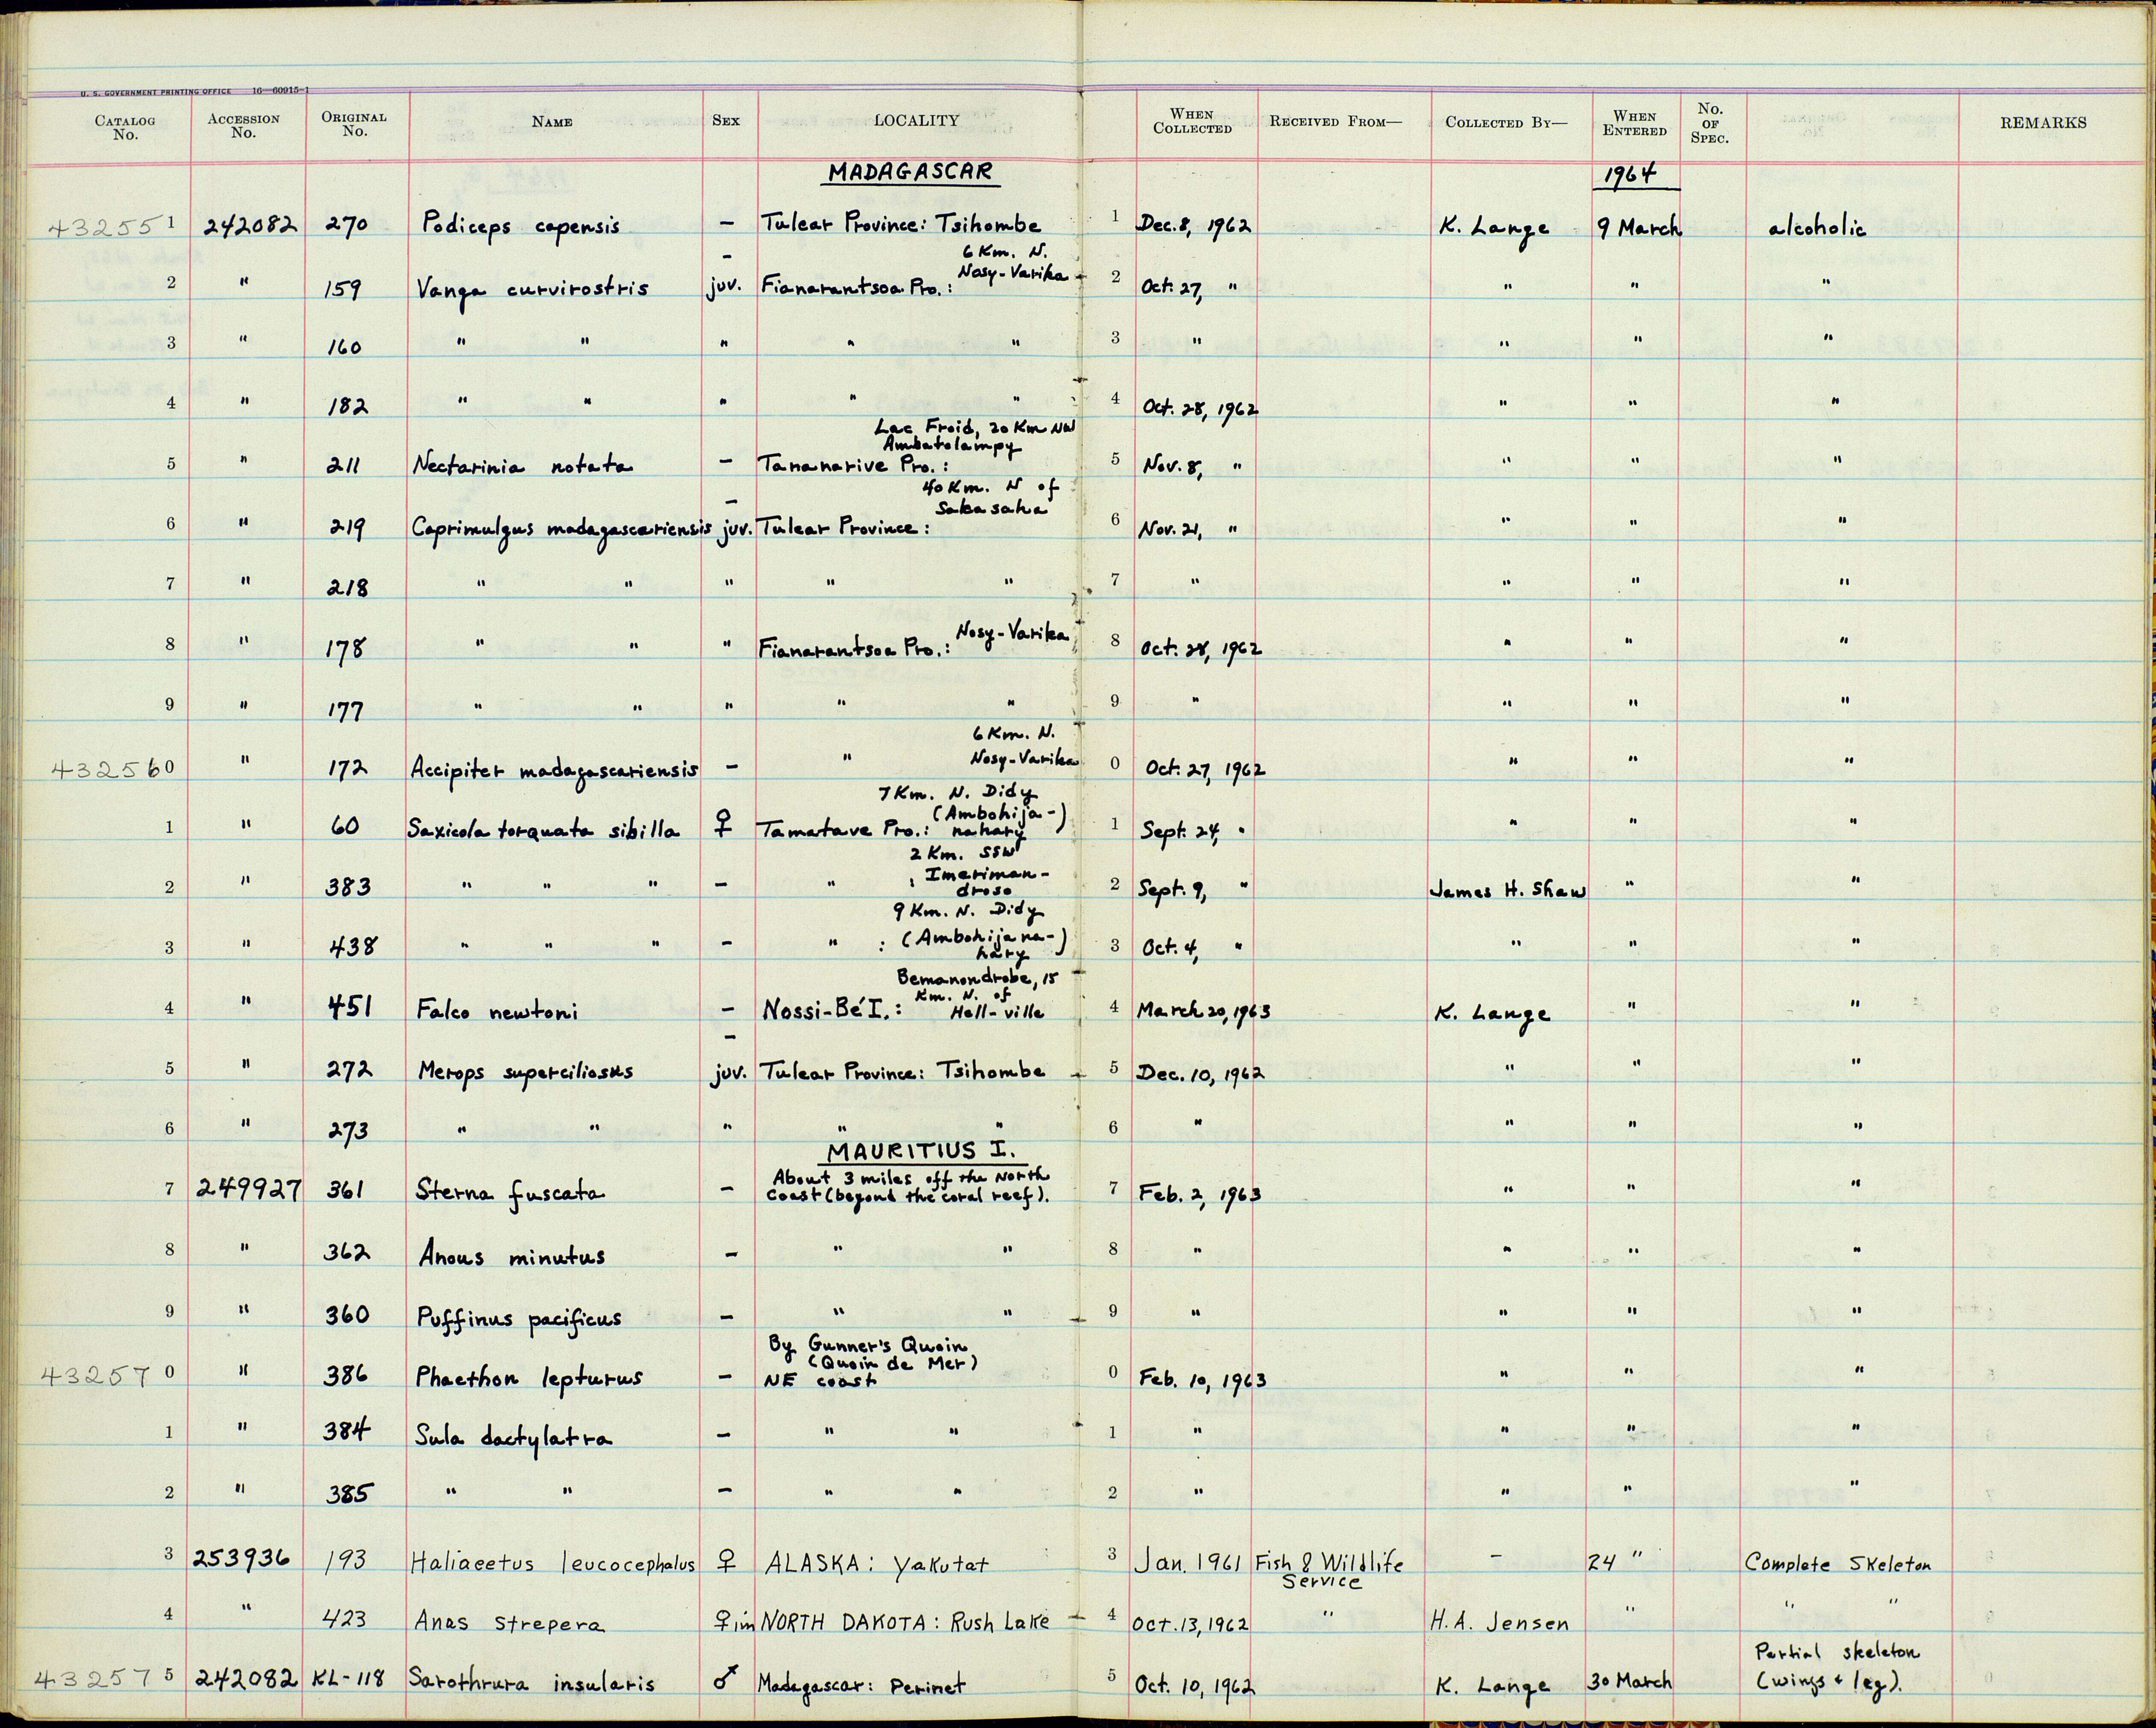 U. S. GOVERNMENT PRINTING OFFICE 16—60915-1
CATALOG No. ACCESSION No. ORIGINAL No. NAME SEX LOCALITY WHEN COLLECTED RECEIVED FROM— COLLECTED BY— WHEN ENTERED No. OF SPEC. REMARKS
MADAGASCAR 1964
432551 242082 270 Podiceps capensis – Tulear Province: Tsihombe 1 Dec. 8, 1962 K. Lange 9 March alcoholic
– 6 Km. N.
2 " 159 Vanga curvirostris juv. Fianarantsoa Pro.: Nosy-Varika 2 Oct. 27, " " " "
3 " 160 " " " " " 3 " " " "
4 " 182 " " " " " 4 Oct. 28, 1962 " " "
Lac Froid, 20 Km NW
Ambatolampy
5 " 211 Nectarinia notata – Tananarive Pro.: 5 Nov. 8, " " " "
40 Km. N of
– Sakasaha
6 " 219 Caprimulgus madagascariensis juv. Tulear Province: 6 Nov. 21, " " " "
7 " 218 " " " " " 7 " " " "
8 " 178 " " " Fianarantsoa Pro.: Nosy-Varika 8 Oct. 28, 1962 " " "
9 " 177 " " " " " 9 " " " "
6 Km. N.
432560 " 172 Accipiter madagascariensis – " Nosy-Varika 0 Oct. 27, 1962 " " "
7 Km. N. Didy
(Ambohija-)
1 " 60 Saxicola torquata sibilla ♀ Tamatave Pro.: nahary 1 Sept. 24, " " " "
2 Km. SSW
2 " 383 " " " – " : Imeriman-
droso 2 Sept. 9, " James H. Shaw " "
9 Km. N. Didy
3 " 438 " " " – " : (Ambohijana-)
hary 3 Oct. 4, " " " "
Bemanondrobe, 15
Km. N. of
4 " 451 Falco newtoni – Nossi-Bé I.: Hell-ville 4 March 20, 1963 K. Lange " "
–
5 " 272 Merops superciliosus juv. Tulear Province: Tsihombe 5 Dec. 10, 1962 " " "
6 " 273 " " " " " 6 " " " "
MAURITIUS I.
About 3 miles off the North
7 249927 361 Sterna fuscata – Coast (beyond the coral reef). 7 Feb. 2, 1963 " " "
8 " 362 Anous minutus – " " 8 " " " "
9 " 360 Puffinus pacificus – " " 9 " " " "
By Gunner's Quoin
(Quoin de Mer)
432570 " 386 Phaethon lepturus – NE coast 0 Feb. 10, 1963 " " "
1 " 384 Sula dactylatra – " " 1 " " " "
2 " 385 " " – " " 2 " " " "
3 253936 193 Haliaeetus leucocephalus ♀ ALASKA: Yakutat 3 Jan. 1961 Fish & Wildlife
Service – 24 " Complete Skeleton
4 " 423 Anas strepera ♀ im NORTH DAKOTA: Rush Lake 4 Oct. 13, 1962 " H. A. Jensen " " "
Partial skeleton
432575 242082 KL-118 Sarothrura insularis ♂ Madagascar: Perinet 5 Oct. 10, 1962 K. Lange 30 March (wings + leg).